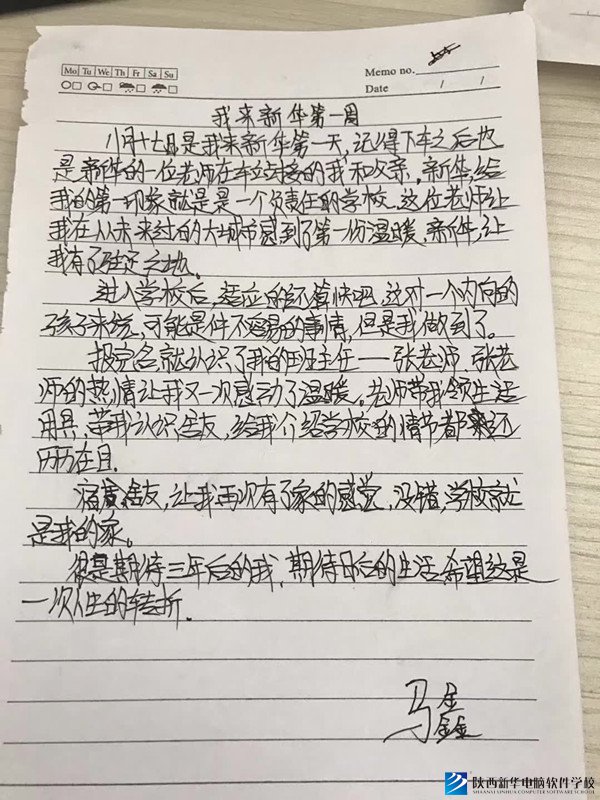 Mo Tu We Th Fr Sa Su
Memo no.
Date / /
我来新华第一周
八月十七日是我来新华第一天,记得下车之后也
是新华的一位老师在车站接的我和父亲。新华给
我的第一印象就是是一个负责任的学校。这位老师让
我在从未来过的大城市感到了第一份温暖,新华,让
我有了驻足之地。
进入学校后,适应的还算快吧,这对一个内向的
孩子来说,可能是件不容易的事情,但是我做到了。
报完名就认识了我的班主任——张老师,张老
师的热情让我又一次感动了温暖。老师带我领生活
用具,带我认识舍友,给我介绍学校的情节都还
历历在目.
宿舍友,让我再次有了家的感觉,没错,学校就
是我的家。
很是期待三年后的我,期待日后的生活,希望这是
一次人生的转折.
马鑫
陕西新华电脑软件学校
SHAANXI XINHUA COMPUTER SOFTWARE SCHOOL